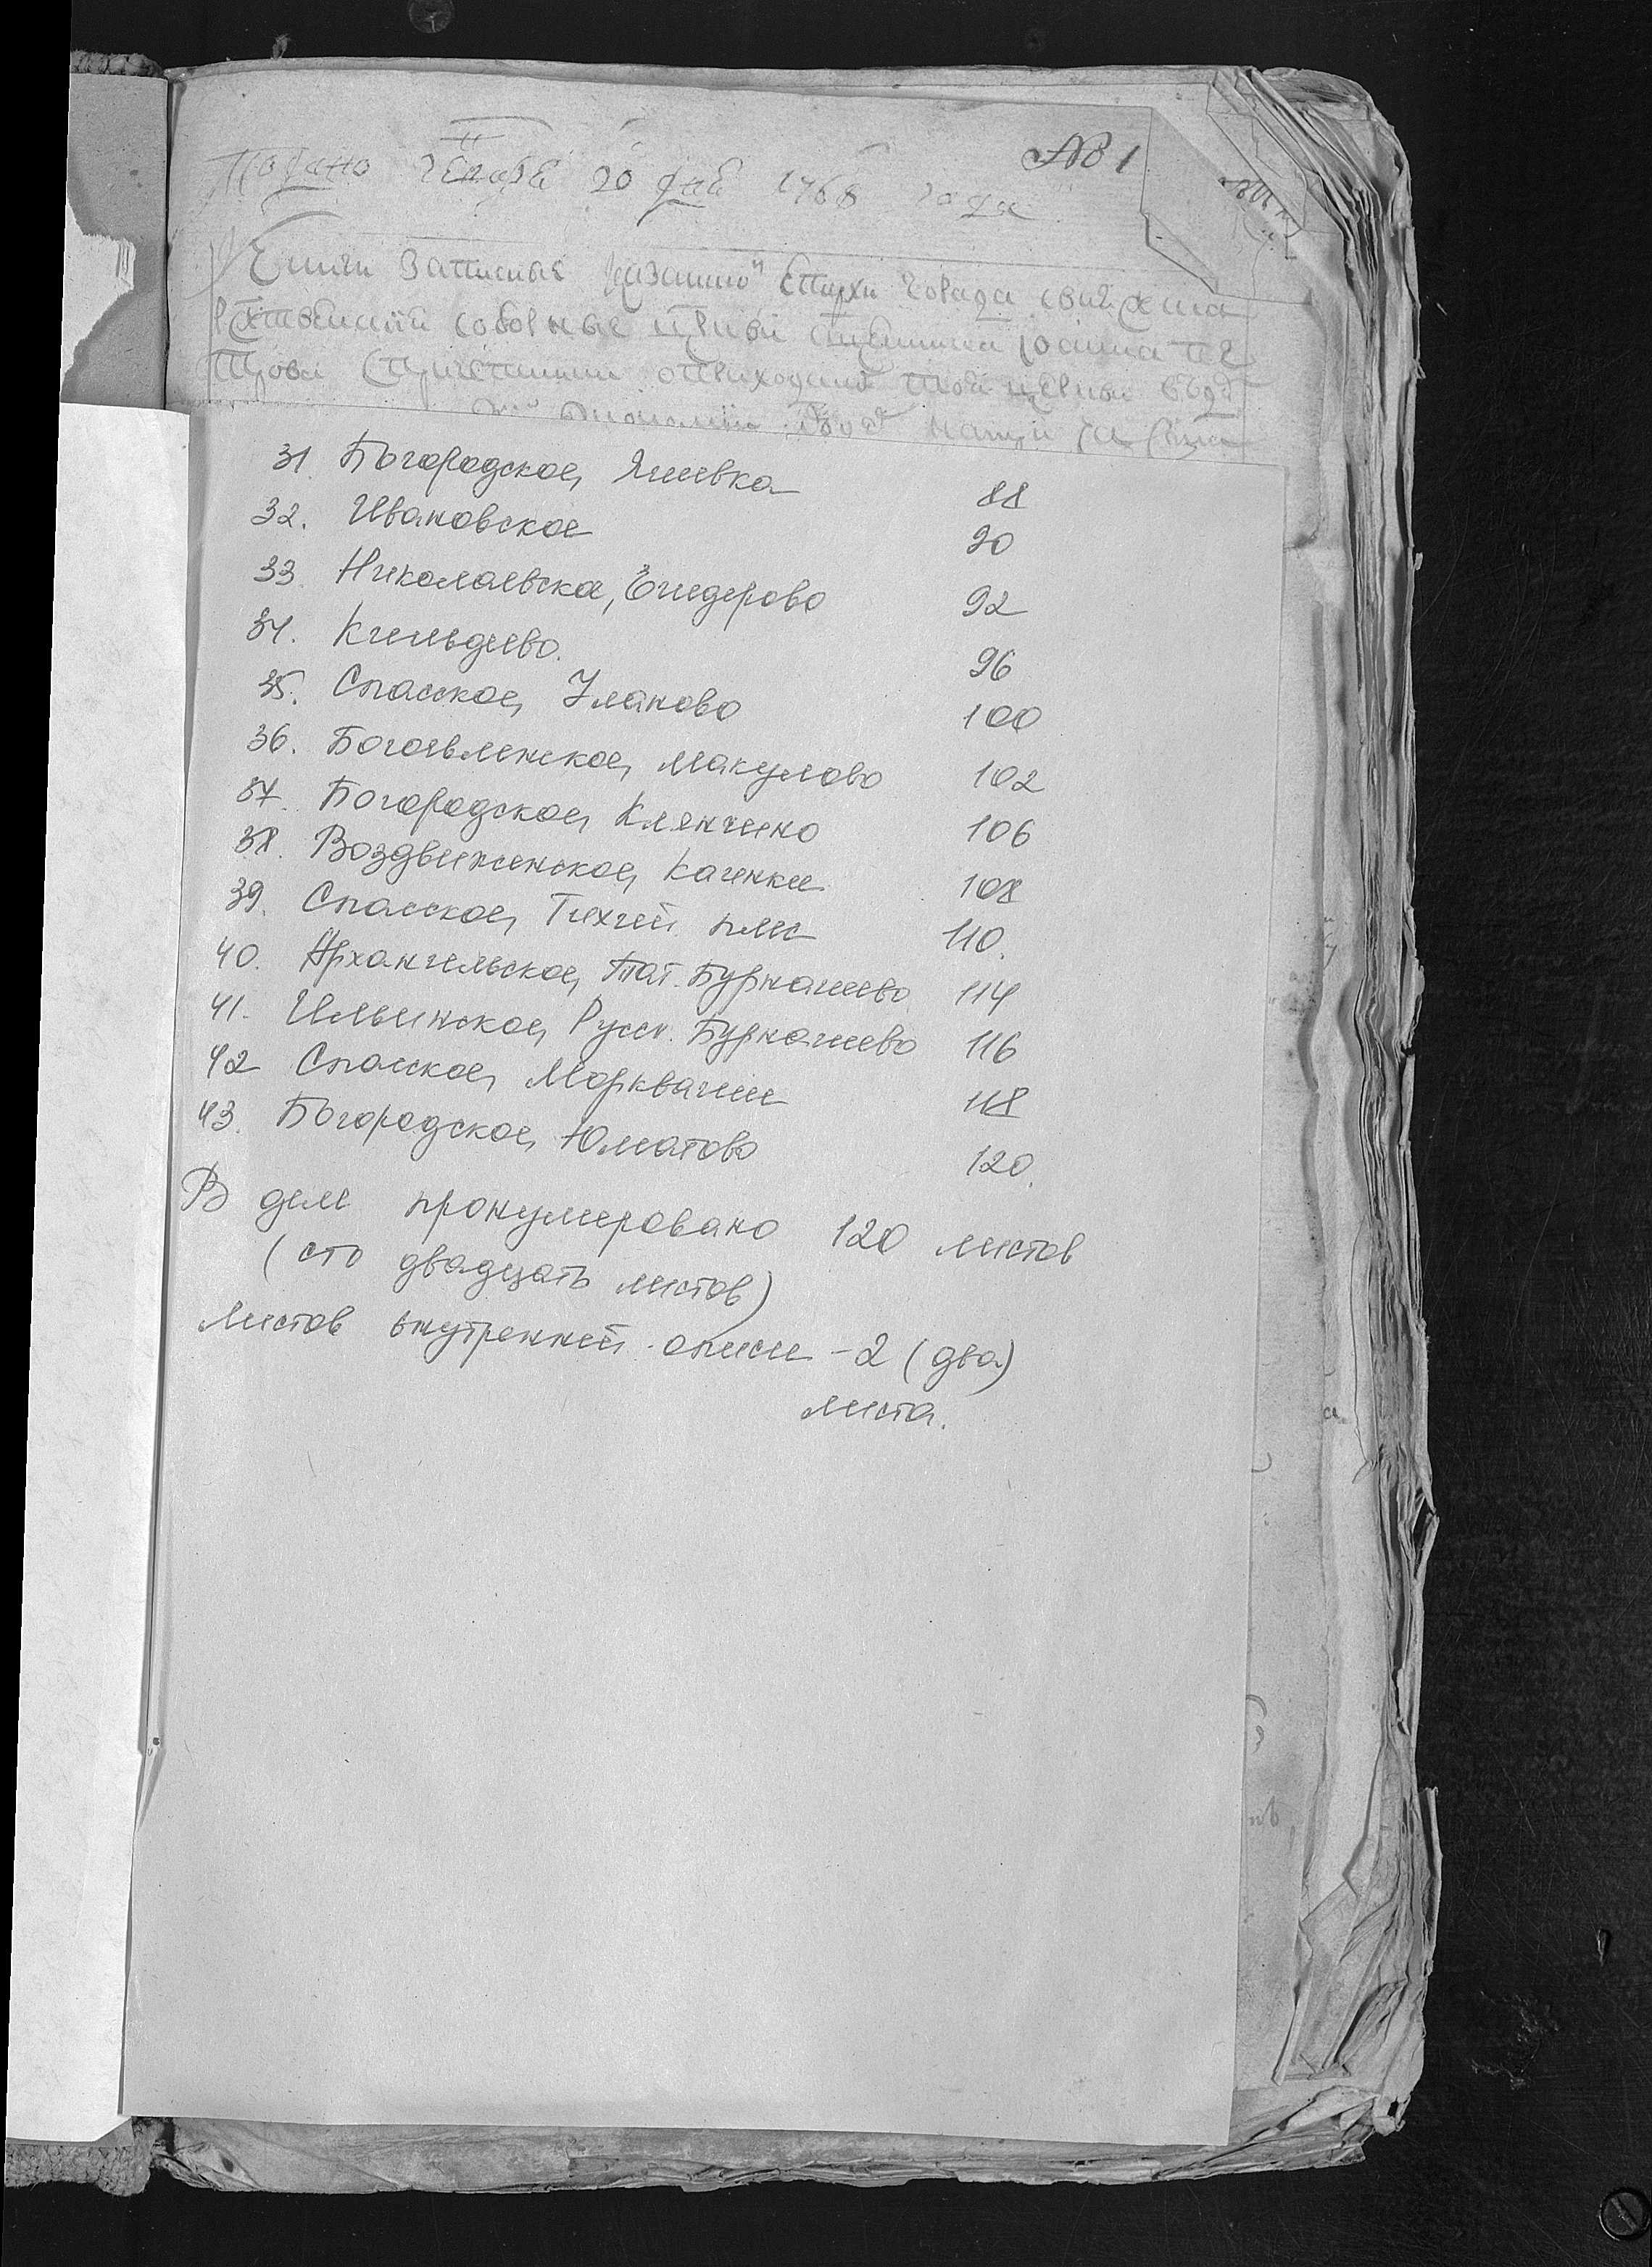 № 1
Подано генваря 20 дня 1768 года
Книги записные казанской епархи города свияжска
рождественской соборные церкви священника иоанна пе
трова с причетники о приходских той церкви
31. Богородское, Яшевка 88
32. Ивановское 90
33. Николаевское, Енидерово 92
34. Кильдеево. 96
35. Спасское, Уланово 100
36. Богоявленское, Макулово 102
37. Богородское, Клянчино 106
38. Воздвиженское, Каинки 108
39. Спасское, Тихий плес 110.
40. Архангельское, Тат. Бурнашево 114
41. Ильинское, Русск. Бурнашево 116
42 Спасское, Моркваши 118
43. Богородское, Юматово 120.
В деле пронумеровано 120 листов
(сто двадцать листов)
Листов внутренней описи - 2 (два)
листа.